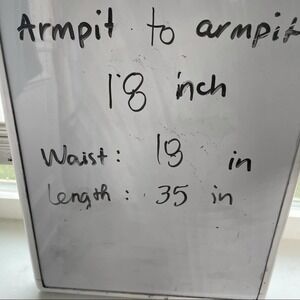 Armpit to armpit
18 inch
Waist: 18 in
Length: 35 in